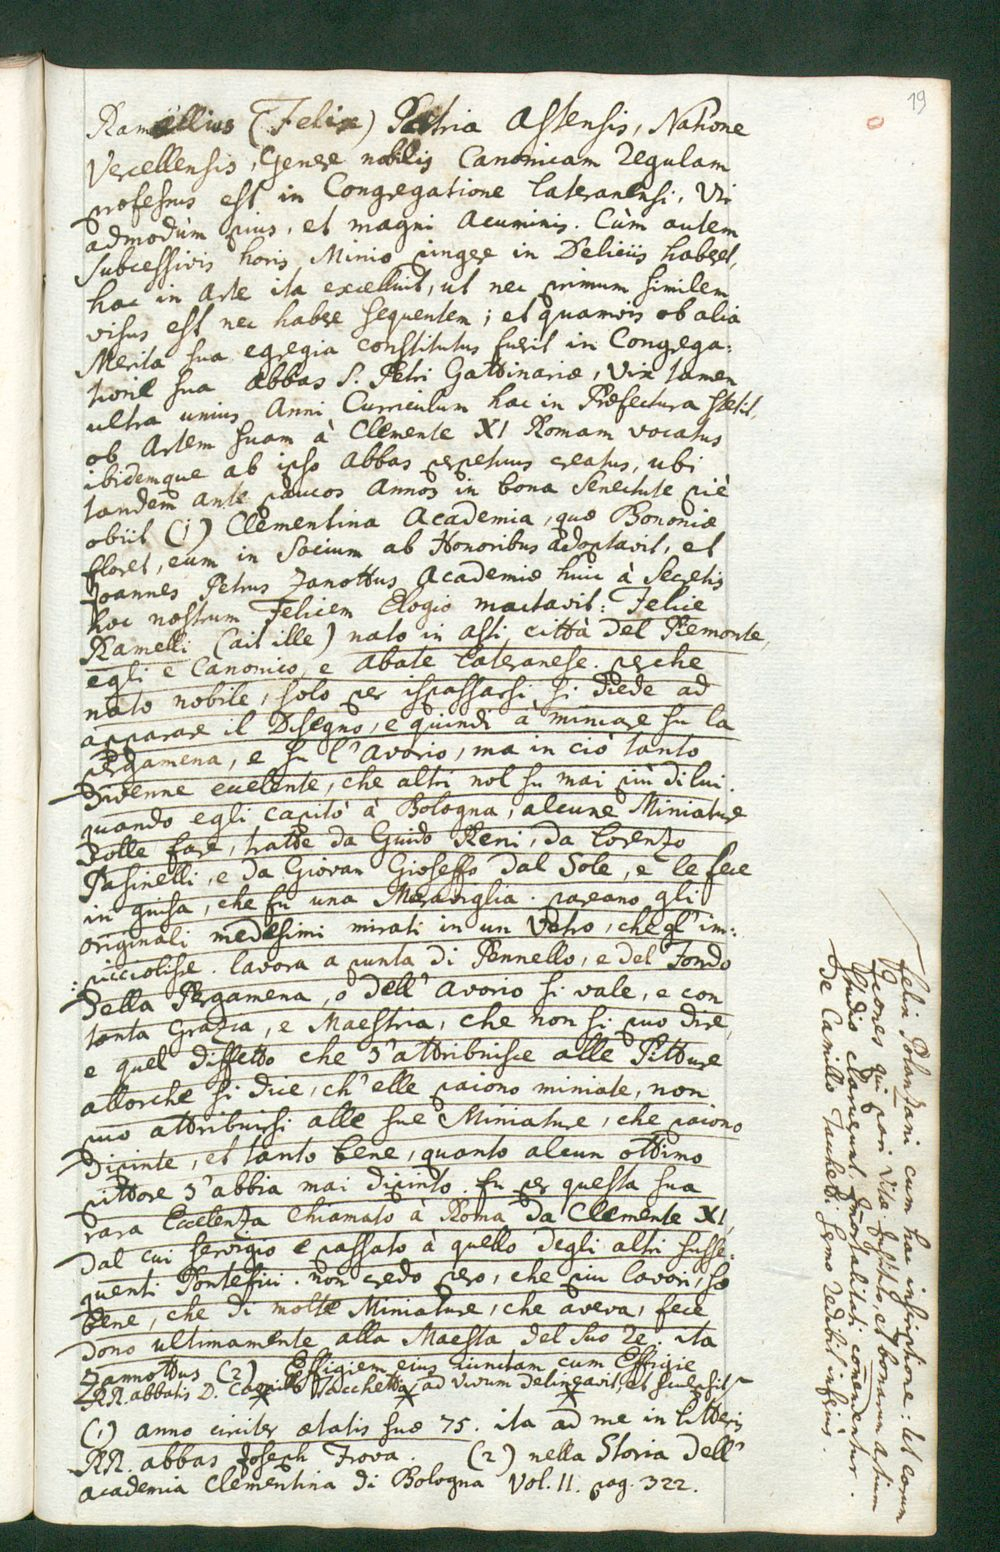 19
Ramellius (Felix) Patria Astensis, Natione
Vercellensis, Genere nobilis Canonicam Regulam
professus est in Congregatione Lateranensi, Vir
admodùm pius, et magni acuminis. Cùm autem
subcessivis horis Minio pingere in Deliciis haberet,
hac in Arte ita excelluit, ut nec primum similem
visus est nec habere sequentem; et quamvis ob alia
Merita sua egregia constitutus fuerit in Congrega:
tione sua Abbas S. Petri Gattinariæ, vix tamen
ultra unius Anni Curriculum hac in Præfectura stetit,
ob Artem suam à Clemente XI Romam vocatus
ibidemque ab ipso Abbas perpetuus creatus, ubi
tandem ante paucos Annos in bona Senectute piè
obiit (1) Clementina Academia, quæ Bononiæ
floret, eum in Socium ab Honoribus adoptavit, et
Joannes Petrus Zanottus Academiæ huic à Secretis
hoc nostrum Felicem Elogio mactavit: Felice
Ramelli (ait ille) nato in Asti, città del Piemonte,
egli è Canonico, e Abate Lateranese. perche
nato nobile, solo per ispassarsi si diede ad
apparare il Disegno, e quindi à miniare su la
pergamena, e su l'Avorio, ma in ciò tanto
divenne ecelente, che altri nol fu mai più di lui.
quando egli capitò à Bologna, alcune Miniature
volle fare, tratte da Guido Reni, da Lorenzo
Pasinelli, e da Giovan Gioseffo dal Sole, e le fece
in guisa, che fu una Meraviglia. pareano gli
originali medesimi mirati in un Vetro, che gl'im:
:picciolisce. lavora a punta di Pennello, e del Fondo
della Pergamena, o dell'Avorio si vale, e con
tanta Grazia, e Maestria, che non si puo dire,
e quel diffetto che s'attribuisce alle Pitture
allorche si dice, ch'elle paiono miniate, non
puo attribuirsi alle sue Miniature, che paiono
dipinte, et tanto bene, quanto alcun ottimo
pittore s'abbia mai dipinto. fu per questa sua
rara Eccelenza chiamato à Roma da Clemente XI,
dal cui servigio è passato à quello degli altri susse:
quenti Pontefici. non credo pero, che piu lavori, so
bene, che di molte Miniature, che aveva, fece
dono ultimamente alla Maestà del suo Re. ita
Zannottus (2) Effigiem eius iunctam cum Effigie
RR. abbatis D. Camilli Tacchetti ad vivum delineavit, et sculpsit
(1) anno circiter ætatis suæ 75. ita ad me in litteris
RR. abbas Joseph Frova. (2) nella Storia dell'
Academia Clementina di Bologna Vol. II. pag. 322.
Felix cum hac inscriptione: Ut eorum
Icones qui pari Vitæ et bonarum artium
studio claruerunt, immortalitati comendentur.
de Camillo Tachetti sermo redibit inferius.